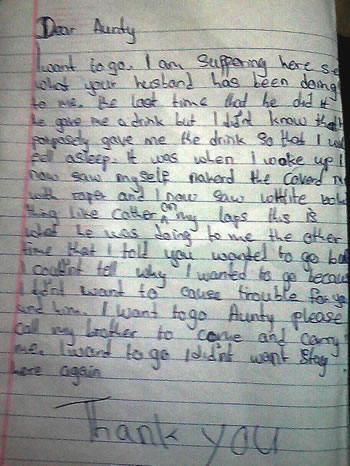 Dear Aunty
I want to go. I am suffering here se
what your husband has been doing
to me. the last time that he did it
he gave me a drink but I didnt know that
porposely gave me the drink so that I
fell asleep. it was when I woke up I
now saw myself nakerd the caverd
with raper and I now saw whtite
thing like Cather on my laps this is
what he was doing to me the other
time that I told you wanted to go
I couldnt tell why I wanted to go becau
I didnt want to cause trouble for yo
and him. I want to go Aunty please
call my brother to come and carry
me. I want to go I didnt want stay
here again
Thank you